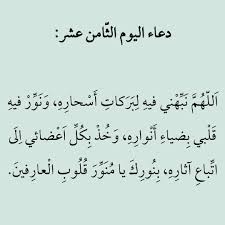 دعاء اليوم الثّامن عشر:
اَللّهُمَّ نَبِّهْني فيهِ لِبَرَكاتِ أَسْحارِهِ، وَنَوِّرْ فيهِ
قَلْبي بِضياءِ أَنْوارِهِ، وَخُذْ بِكُلِّ اَعْضائي اِلَى
اتِّباعِ آثارِهِ، بِنُورِكَ يا مُنَوِّرَ قُلُوبِ الْعارِفينَ.